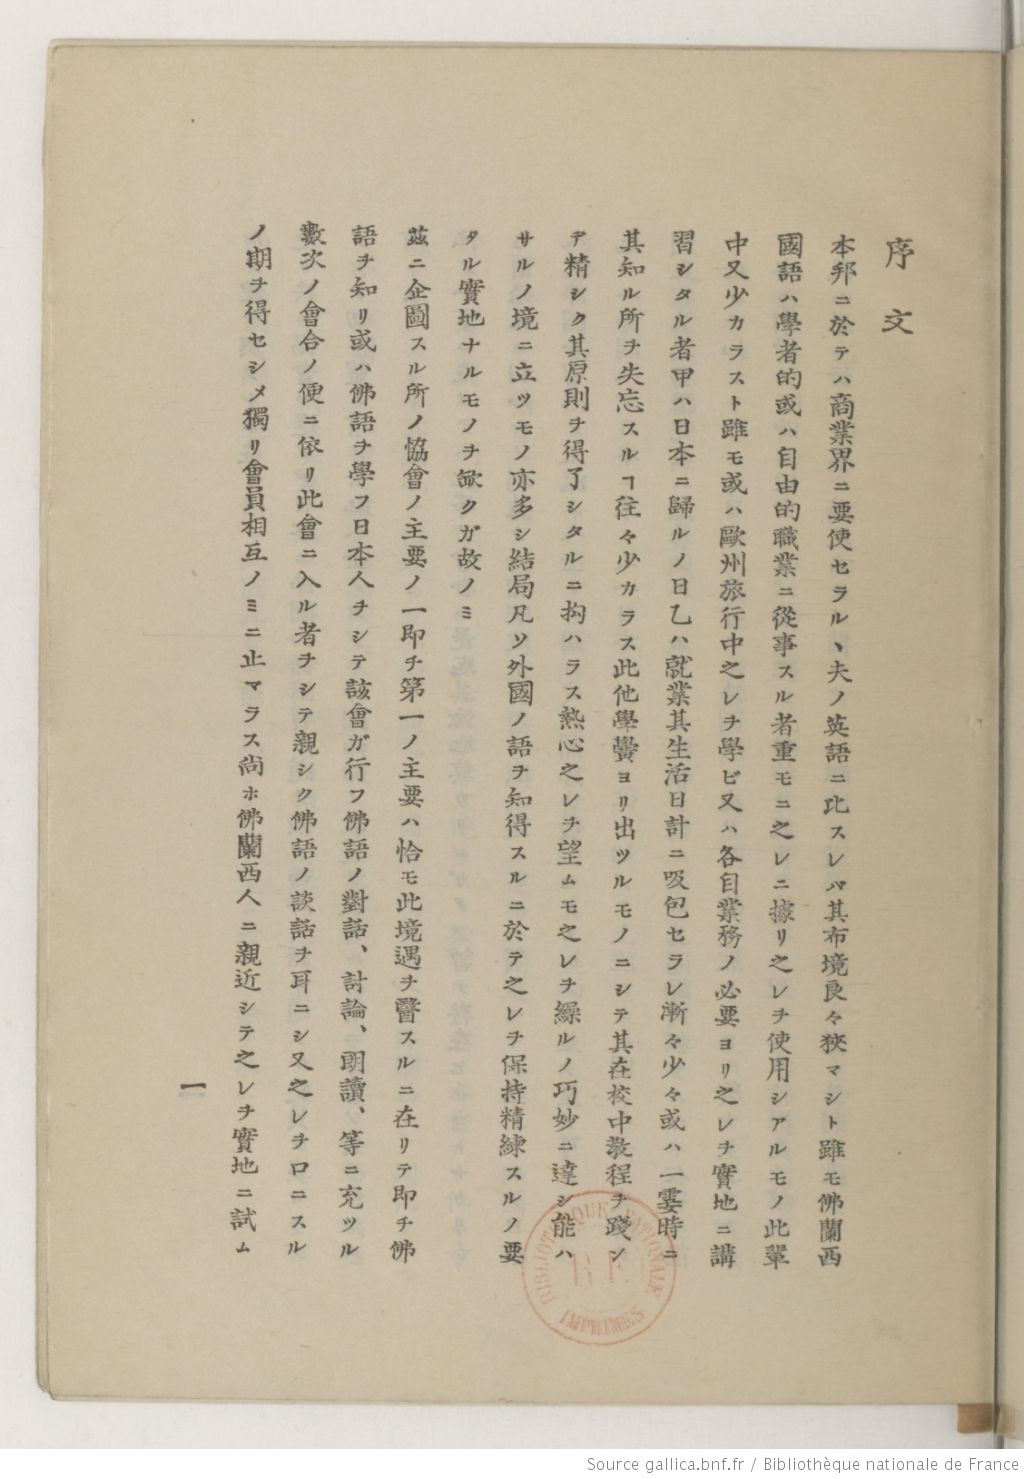 序文
本邦ニ於テハ商業界ニ要使セラルヽ夫ノ英語ニ比スレハ其布境良々狹マシト雖モ佛蘭西
國語ハ學者的或ハ自由的職業ニ從事スル者重モニ之レニ據リ之レヲ使用シアルモノ此輩
中又少カラスト雖モ或ハ歐州旅行中之レヲ學ビ又ハ各自業務ノ必要ヨリ之レヲ實地ニ講
習シタル者甲ハ日本ニ歸ルノ日乙ハ就業其生活日計ニ吸包セラレ漸々少々或ハ一霎時ニ
其知ル所ヲ失忘スルヿ往々少カラス此他學黌ヨリ出ツルモノニシテ其在校中敎程ヲ踐ン
デ精シク其原則ヲ得了シタルニ拘ハラス熱心之レヲ望ムモ之レヲ繰ルノ巧妙ニ達シ能ハ
サルノ境ニ立ツモノ亦多シ結局凡ソ外國ノ語ヲ知得スルニ於テ之レヲ保持精練スルノ要
タル實地ナルモノヲ缺クガ故ノミ
茲ニ企圖スル所ノ協會ノ主要ノ一即チ第一ノ主要ハ恰モ此境遇ヲ醫スルニ在リテ即チ佛
語ヲ知リ或ハ佛語ヲ學フ日本人ヲシテ該會ガ行フ佛語ノ對話、討論、朗讀、等ニ充ツル
數次ノ會合ノ便ニ依リ此會ニ入ル者ヲシテ親シク佛語ノ談話ヲ耳ニシ又之レヲ口ニスル
ノ期ヲ得セシメ獨リ會員相互ノミニ止マラス尚ホ佛蘭西人ニ親近シテ之レヲ實地ニ試ム
一
BIBLIOTHEQUE NATIONALE
R F
IMPRIMES
Source gallica.bnf.fr / Bibliothèque nationale de France